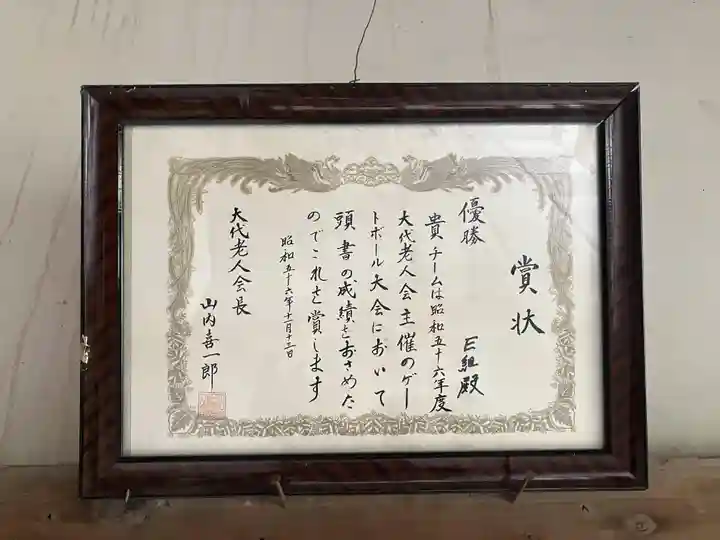 賞状
優勝
E組殿
貴チームは昭和五十六年度
大代老人会主催のゲー
トボール大会において
頭書の成績をおさめた
のでこれを賞します
昭和五十六年十月十三日
大代老人会長
山内喜一郎